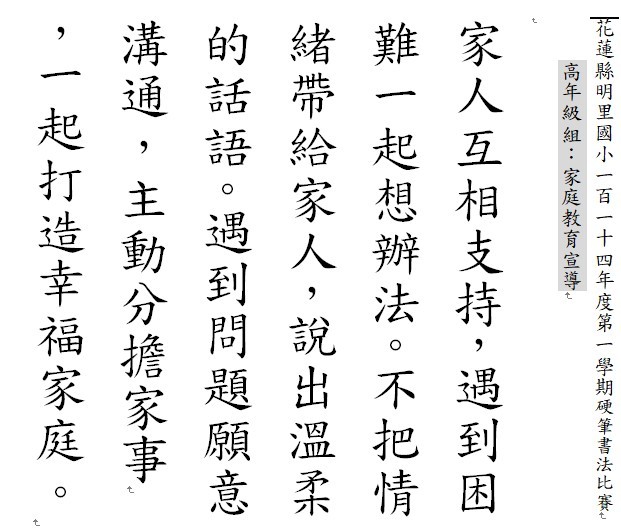 花蓮縣明里國小一百一十四年度第一學期硬筆書法比賽
高年級組：家庭教育宣導
家人互相支持，遇到困
難一起想辦法。不把情
緒帶給家人，說出溫柔
的話語。遇到問題願意
溝通，主動分擔家事
，一起打造幸福家庭。